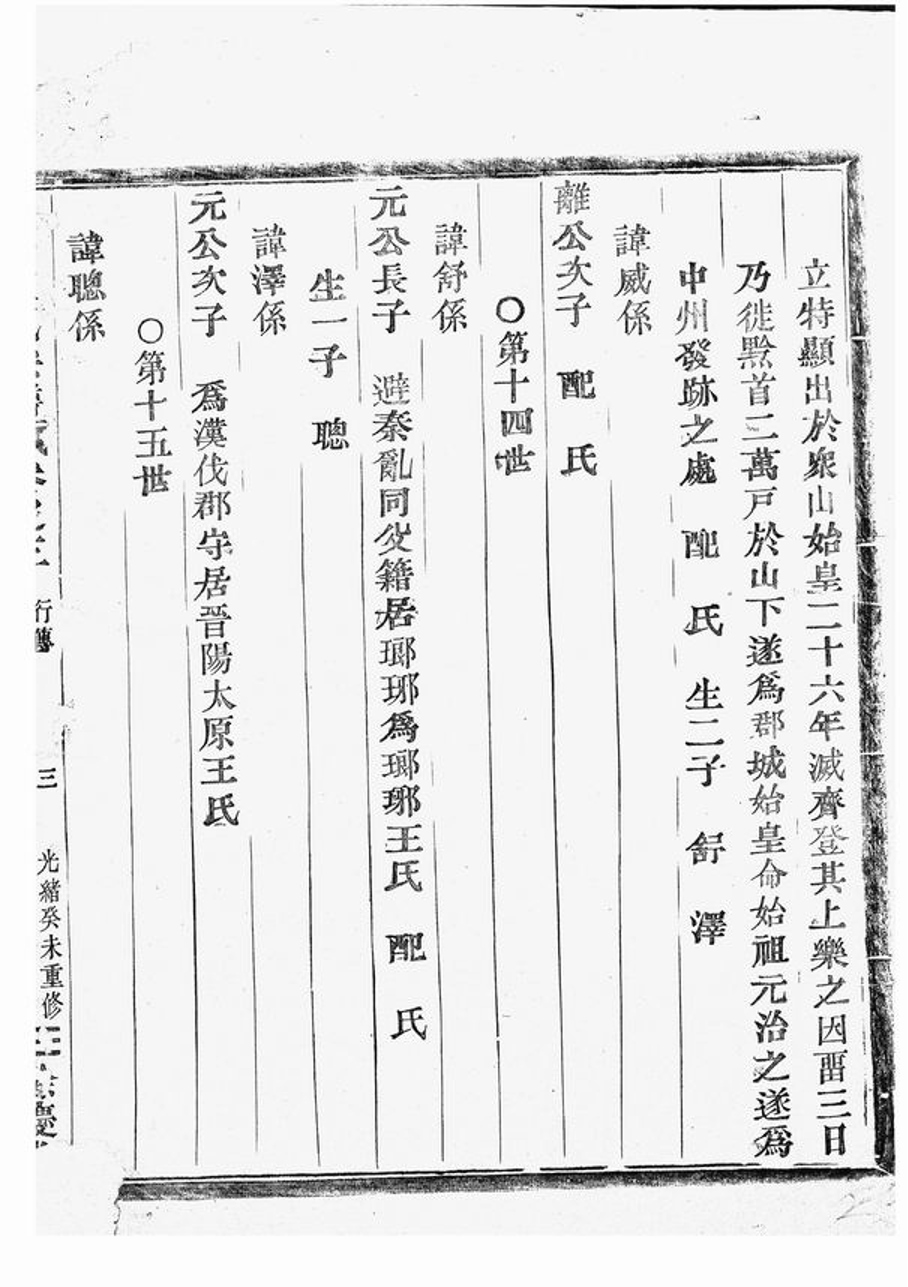 立特顯出於衆山始皇二十六年滅齊登其上樂之因畱三日
乃徙黔首二萬戸於山下遂爲郡城始皇命始祖元治之遂爲
中州發跡之處 配 氏 生二子 舒 澤
諱威係
離公次子 配 氏
○第十四世
諱舒係
元公長子 避秦亂同父籍居瑯琊爲瑯琊王氏 配 氏
生一子 聰
諱澤係
元公次子 爲漢伐郡守居晉陽太原王氏
○第十五世
諱聰係
行傳
三
光緒癸未重修